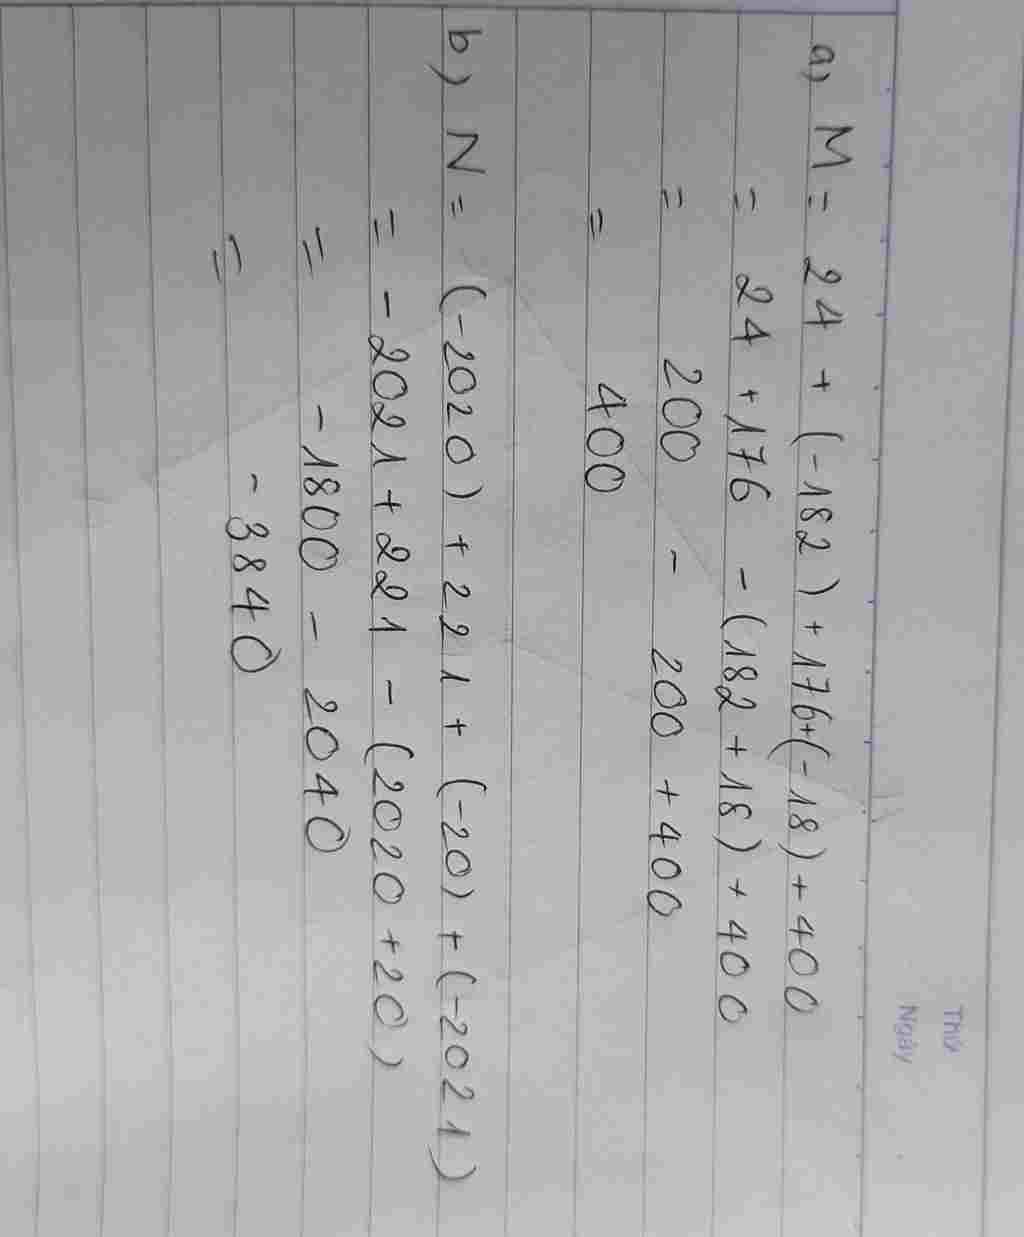 Thứ
Ngày
a) M = 24 + (-182) + 176 + (-18) + 400
= 24 + 176 - (182 + 18) + 400
= 200 - 200 + 400
= 400
b) N = (-2020) + 221 + (-20) + (-2021)
= -2021 + 221 - (2020 + 20)
= -1800 - 2040
= -3840